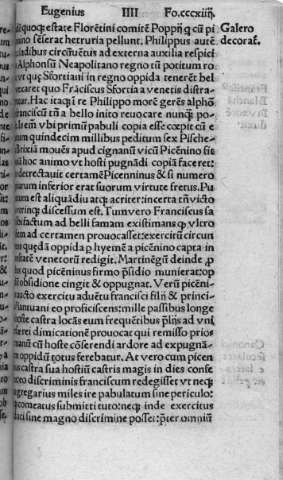 Eugenius IIII Fo.cccxiiij.
Galero
decorat᷑.
quoq; estate Florẽtini comitẽ Poppij q̃ cũ pi
nino senserat hetruria pellunt. Philippus autẽ
ladibus circũuẽtus ad externa auxilia respici
Alphonsũ Neapolitano regno tũ potitum ro
vt quę Sfortiani in regno oppida tenerẽt bel
inuaderet quo Frãciscus Sfortia a venetis distra
retur. Hac itaq; re Philippo morẽ gerẽs alphõs⁹
franciscũ tñ a bello inito reuocare nunq̃; po
it. em vbi primũ pabuli copia esse cœpit cũ e
um quindecim millibus peditum sex Pische
brixiã mouẽs apud cignanũ vicũ Picẽnino sic
hoc animo vt hosti pugnãdi copiã faceret:
detrectauit certamẽ Picenninus & si numero
rum inferior erat suorum virtute fretus. Pu
um est aliquãdiu atq; acriter: incerta tñ victo
utrinq; discessum est. Tum vero Franciscus sa
factum ad belli famam existimans q̃ vltro
em ad certamen prouocasset: exercitũ circuit
quędã oppida p hyemẽ a picẽnino capta in
tatẽ venetorũ redigit. Martinẽgũ deinde, p
quod picẽninus firmo p̃sidio munierat: op
obsidione cingit & oppugnat. Verũ picẽni
aucto exercitu aduẽtu francisci filij & princi
Mantuani eo proficiscens: mille passibus longe
castra locãs eum frequẽtibus prelijs ad vni
dimicationẽ prouocat qui remisso prios
cũ hoste cõserendi ardore ad expugnã
oppidũ totus ferebatur. At vero cum picen
castra sua hostiũ castris magis in dies conse
eo discriminis franciscum redegisset vt neq;
gregarius miles ire pabulatum sine periculo:
comeatus submitti tuto: neq; inde exercitus
duci sine magno discrimine posset: pter omniũ